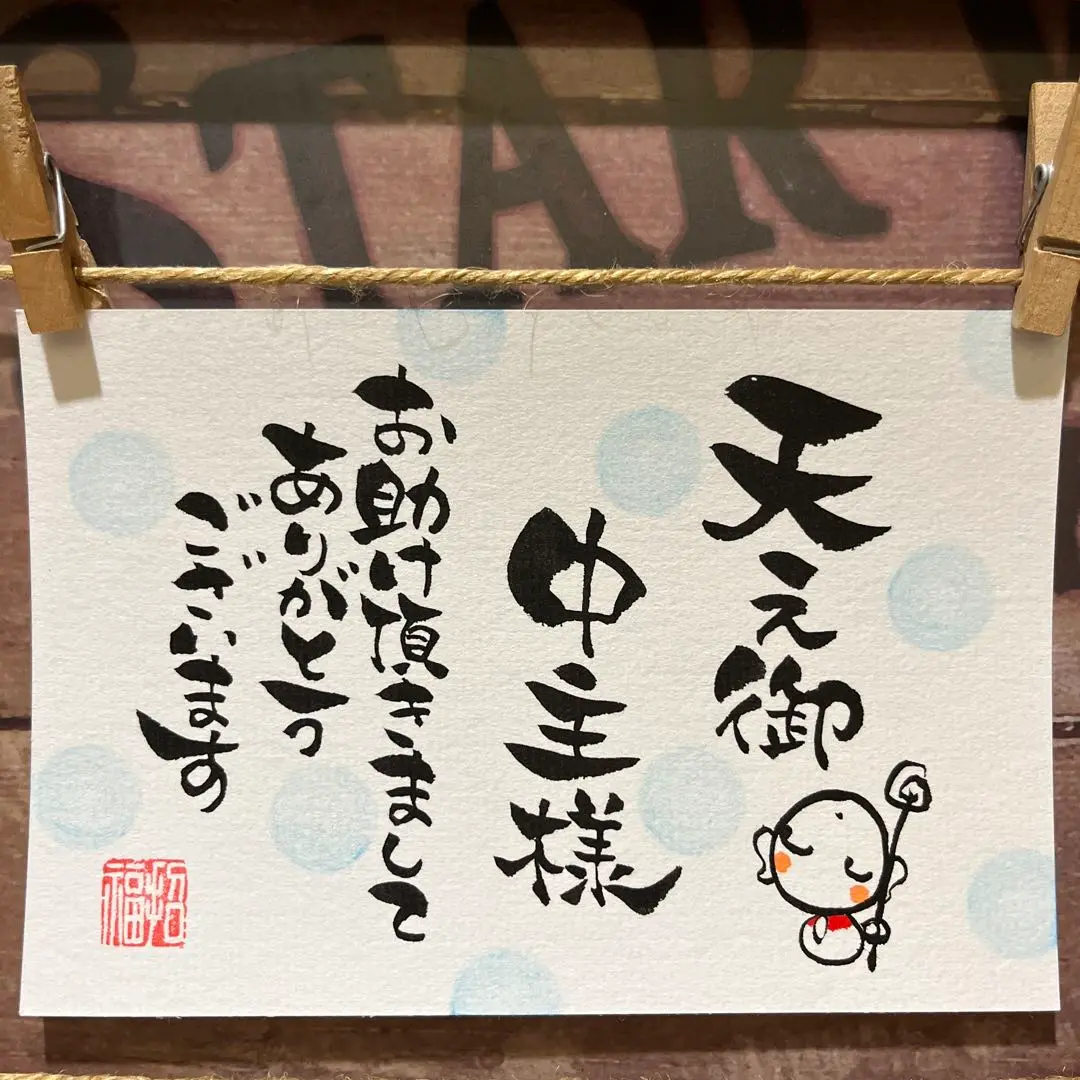 STAR
天之御
中主様
お助け頂きまして
ありがとう
ございます
招福